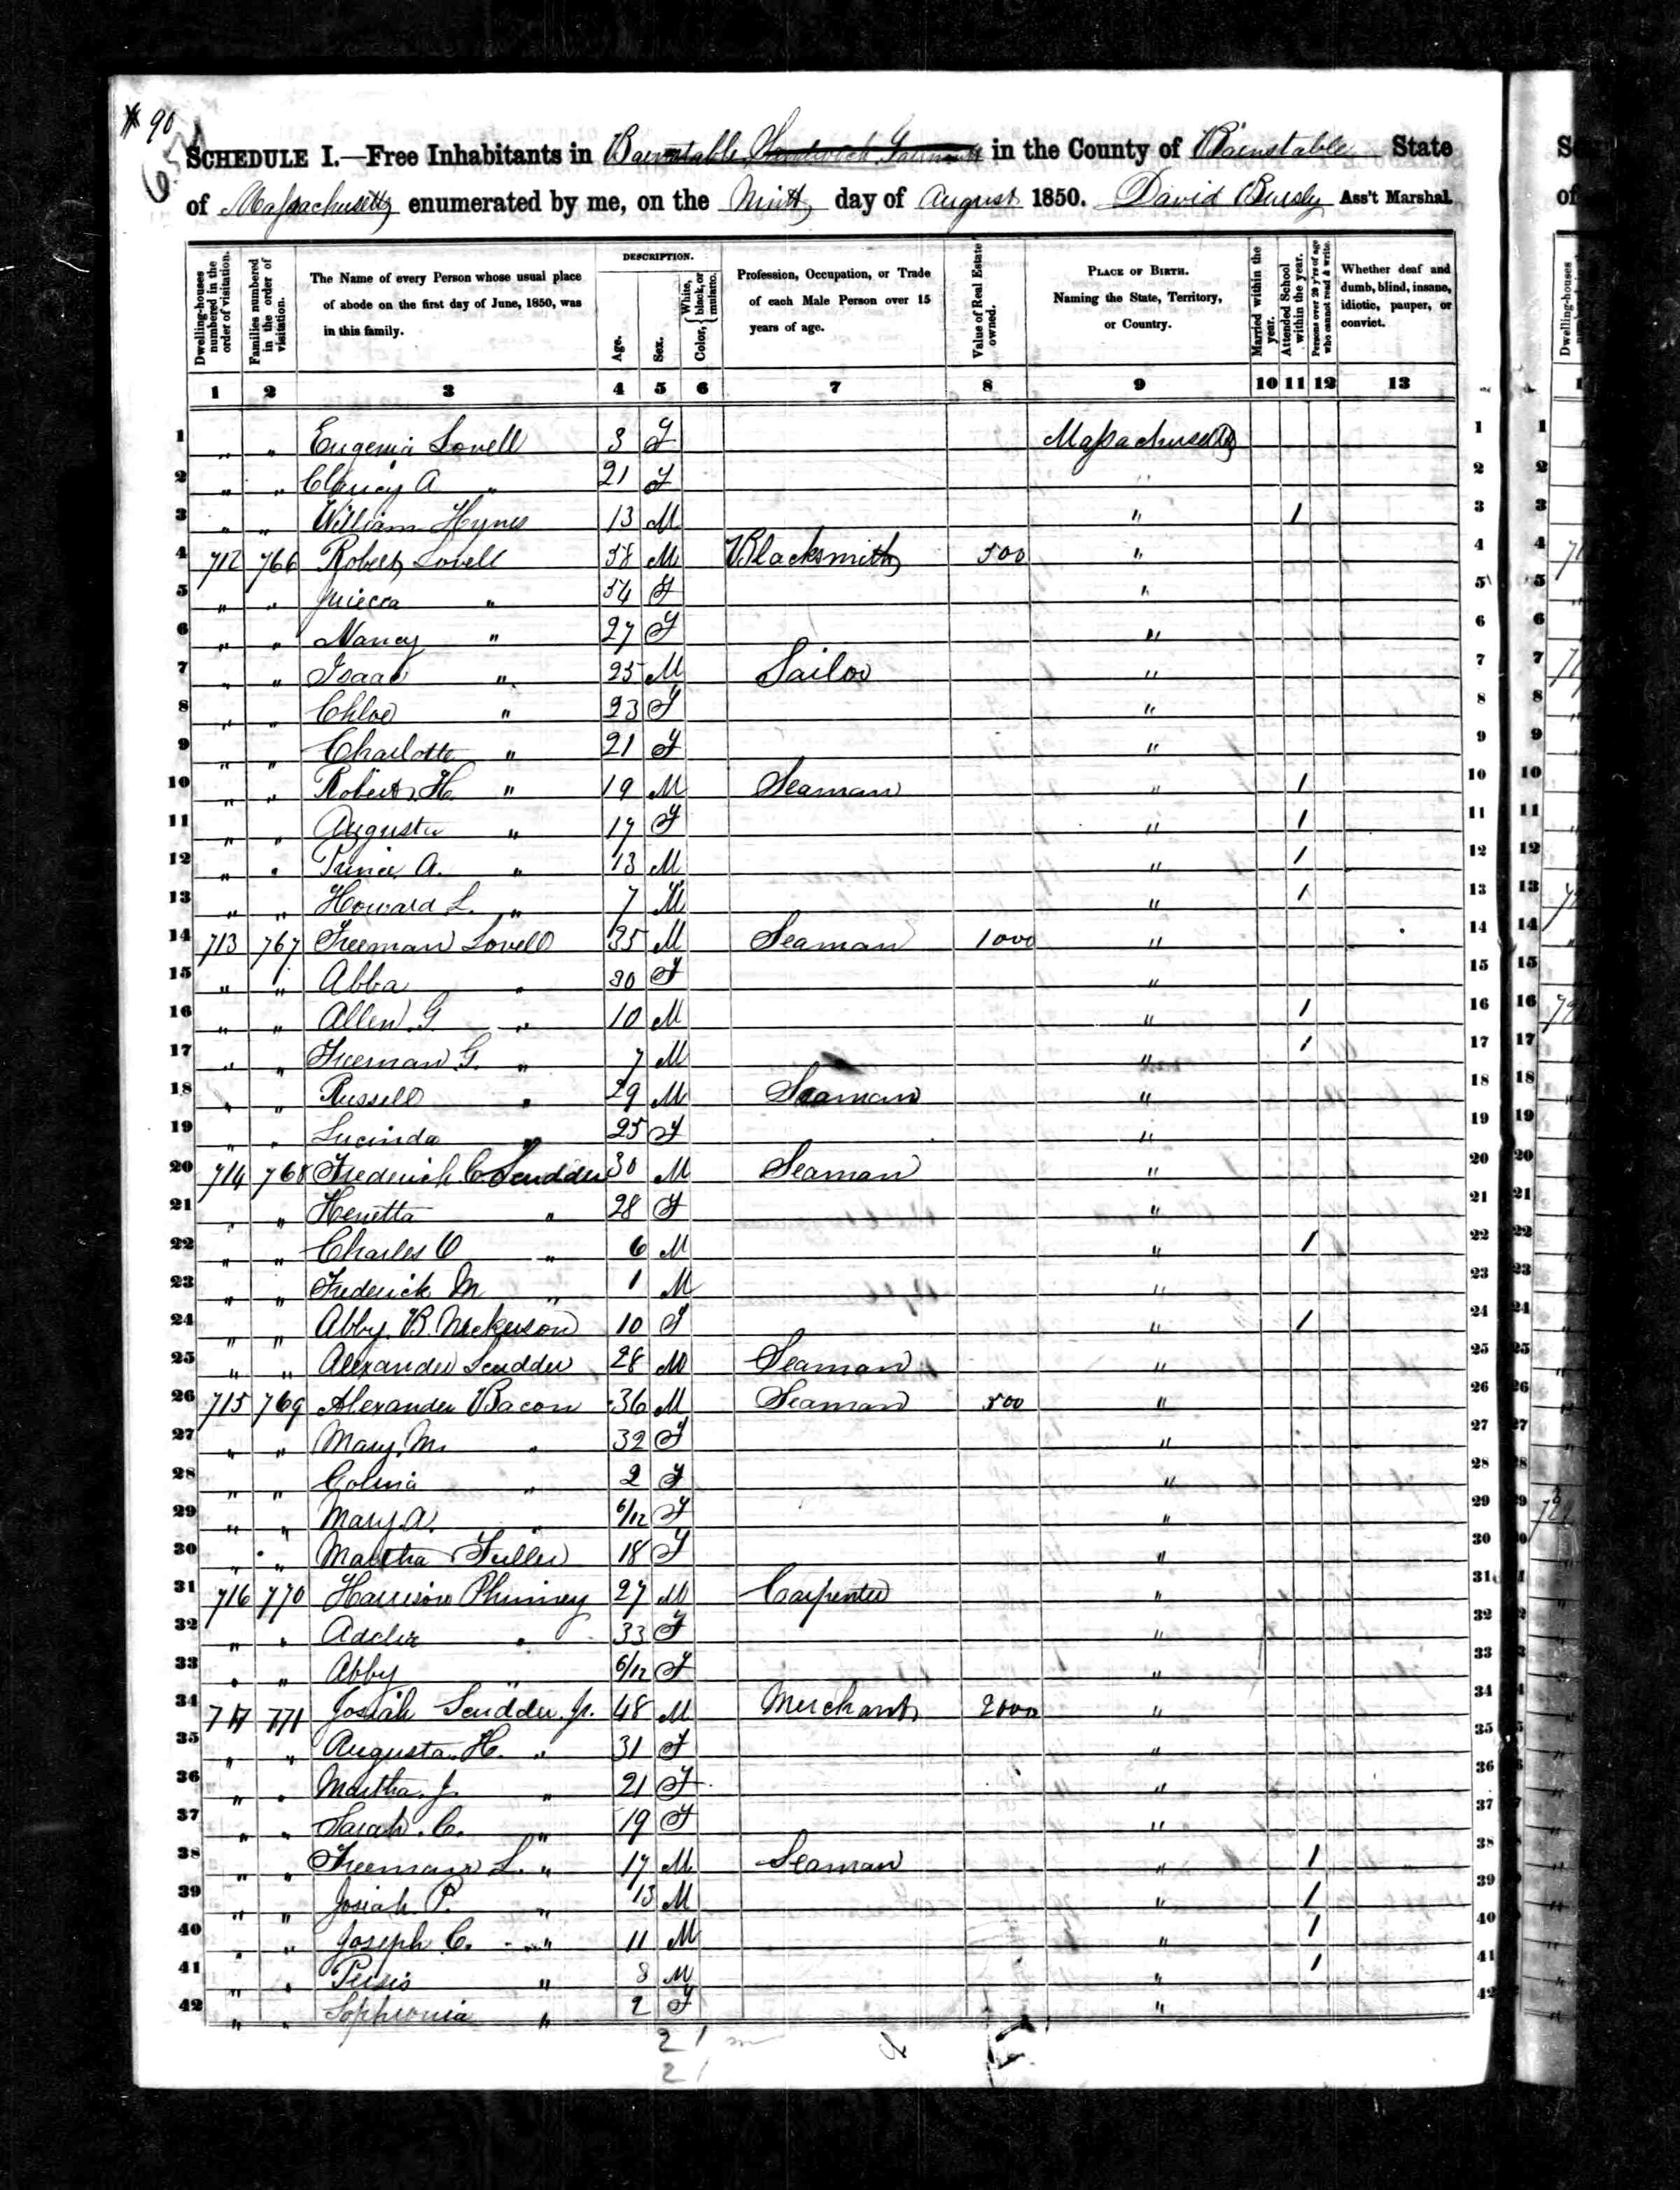 # 90
SCHEDULE I.—Free Inhabitants in Barnstable Sandwich Falmouth in the County of Barnstable State
of Massachusetts enumerated by me, on the Ninth day of August 1850. David Bursley Ass't Marshal.
Dwelling-houses numbered in the order of visitation.
Families numbered in the order of visitation.
The Name of every Person whose usual place of abode on the first day of June, 1850, was in this family.
DESCRIPTION.
Age.
Sex.
Color, White, black, or mulatto.
Profession, Occupation, or Trade of each Male Person over 15 years of age.
Value of Real Estate owned.
PLACE OF BIRTH. Naming the State, Territory, or Country.
Married within the year.
Attended School within the year.
Persons over 20 y'rs of age who cannot read & write.
Whether deaf and dumb, blind, insane, idiotic, pauper, or convict.
1 2 3 4 5 6 7 8 9 10 11 12 13
1 " " Eugenia Lovell 3 F Massachusetts 1
2 " " A " 21 F " 2
3 " " William Hynes 13 M " 1 3
4 712 766 Robert Lovell 58 M Blacksmith 500 " 4
5 " " " 54 F " 5
6 " " Nancy " 27 F " 6
7 " " Isaac " 25 M Sailor " 7
8 " " Chloe " 23 F " 8
9 " " Charlotte " 21 F " 9
10 " " Robert H. " 19 M Seaman " 1 10
11 " " Augusta " 17 F " 1 11
12 " " Prince A. " 13 M " 1 12
13 " " Howard L. " 7 M " 1 13
14 713 767 Freeman Lovell 35 M Seaman 1000 " 14
15 " " Abba " 30 F " 15
16 " " Allen G. " 10 M " 1 16
17 " " Freeman G. " 7 M " 1 17
18 " " Russell " 29 M Seaman " 18
19 " " Lucinda " 25 F " 19
20 714 768 Frederick C Scudder 30 M Seaman " 20
21 " " Henetta " 28 F " 21
22 " " Charles O " 6 M " 1 22
23 " " Frederick M " 1 M " 23
24 " " Abby B. Nickerson 10 F " 1 24
25 " " Alexander Scudder 28 M Seaman " 25
26 715 769 Alexander Bacon 36 M Seaman 500 " 26
27 " " Mary M. " 32 F " 27
28 " " " 2 F " 28
29 " " Mary A. " 6/12 F " 29
30 " " Martha Fuller 18 F " 30
31 716 770 Harrison Phinney 27 M Carpenter " 31
32 " " " 33 F " 32
33 " " Abby " 6/12 F " 33
34 717 771 Josiah Scudder Jr. 48 M Merchant 2000 " 34
35 " " Augusta H. " 31 F " 35
36 " " Martha J. " 21 F " 36
37 " " Sarah C. " 19 F " 37
38 " " Freeman L. " 17 M Seaman " 1 38
39 " " Josiah P. " 13 M " 1 39
40 " " Joseph C. " 11 M " 1 40
41 " " Persis " 8 M " 1 41
42 " " Sophronia " 2 F " 42
21 m
21